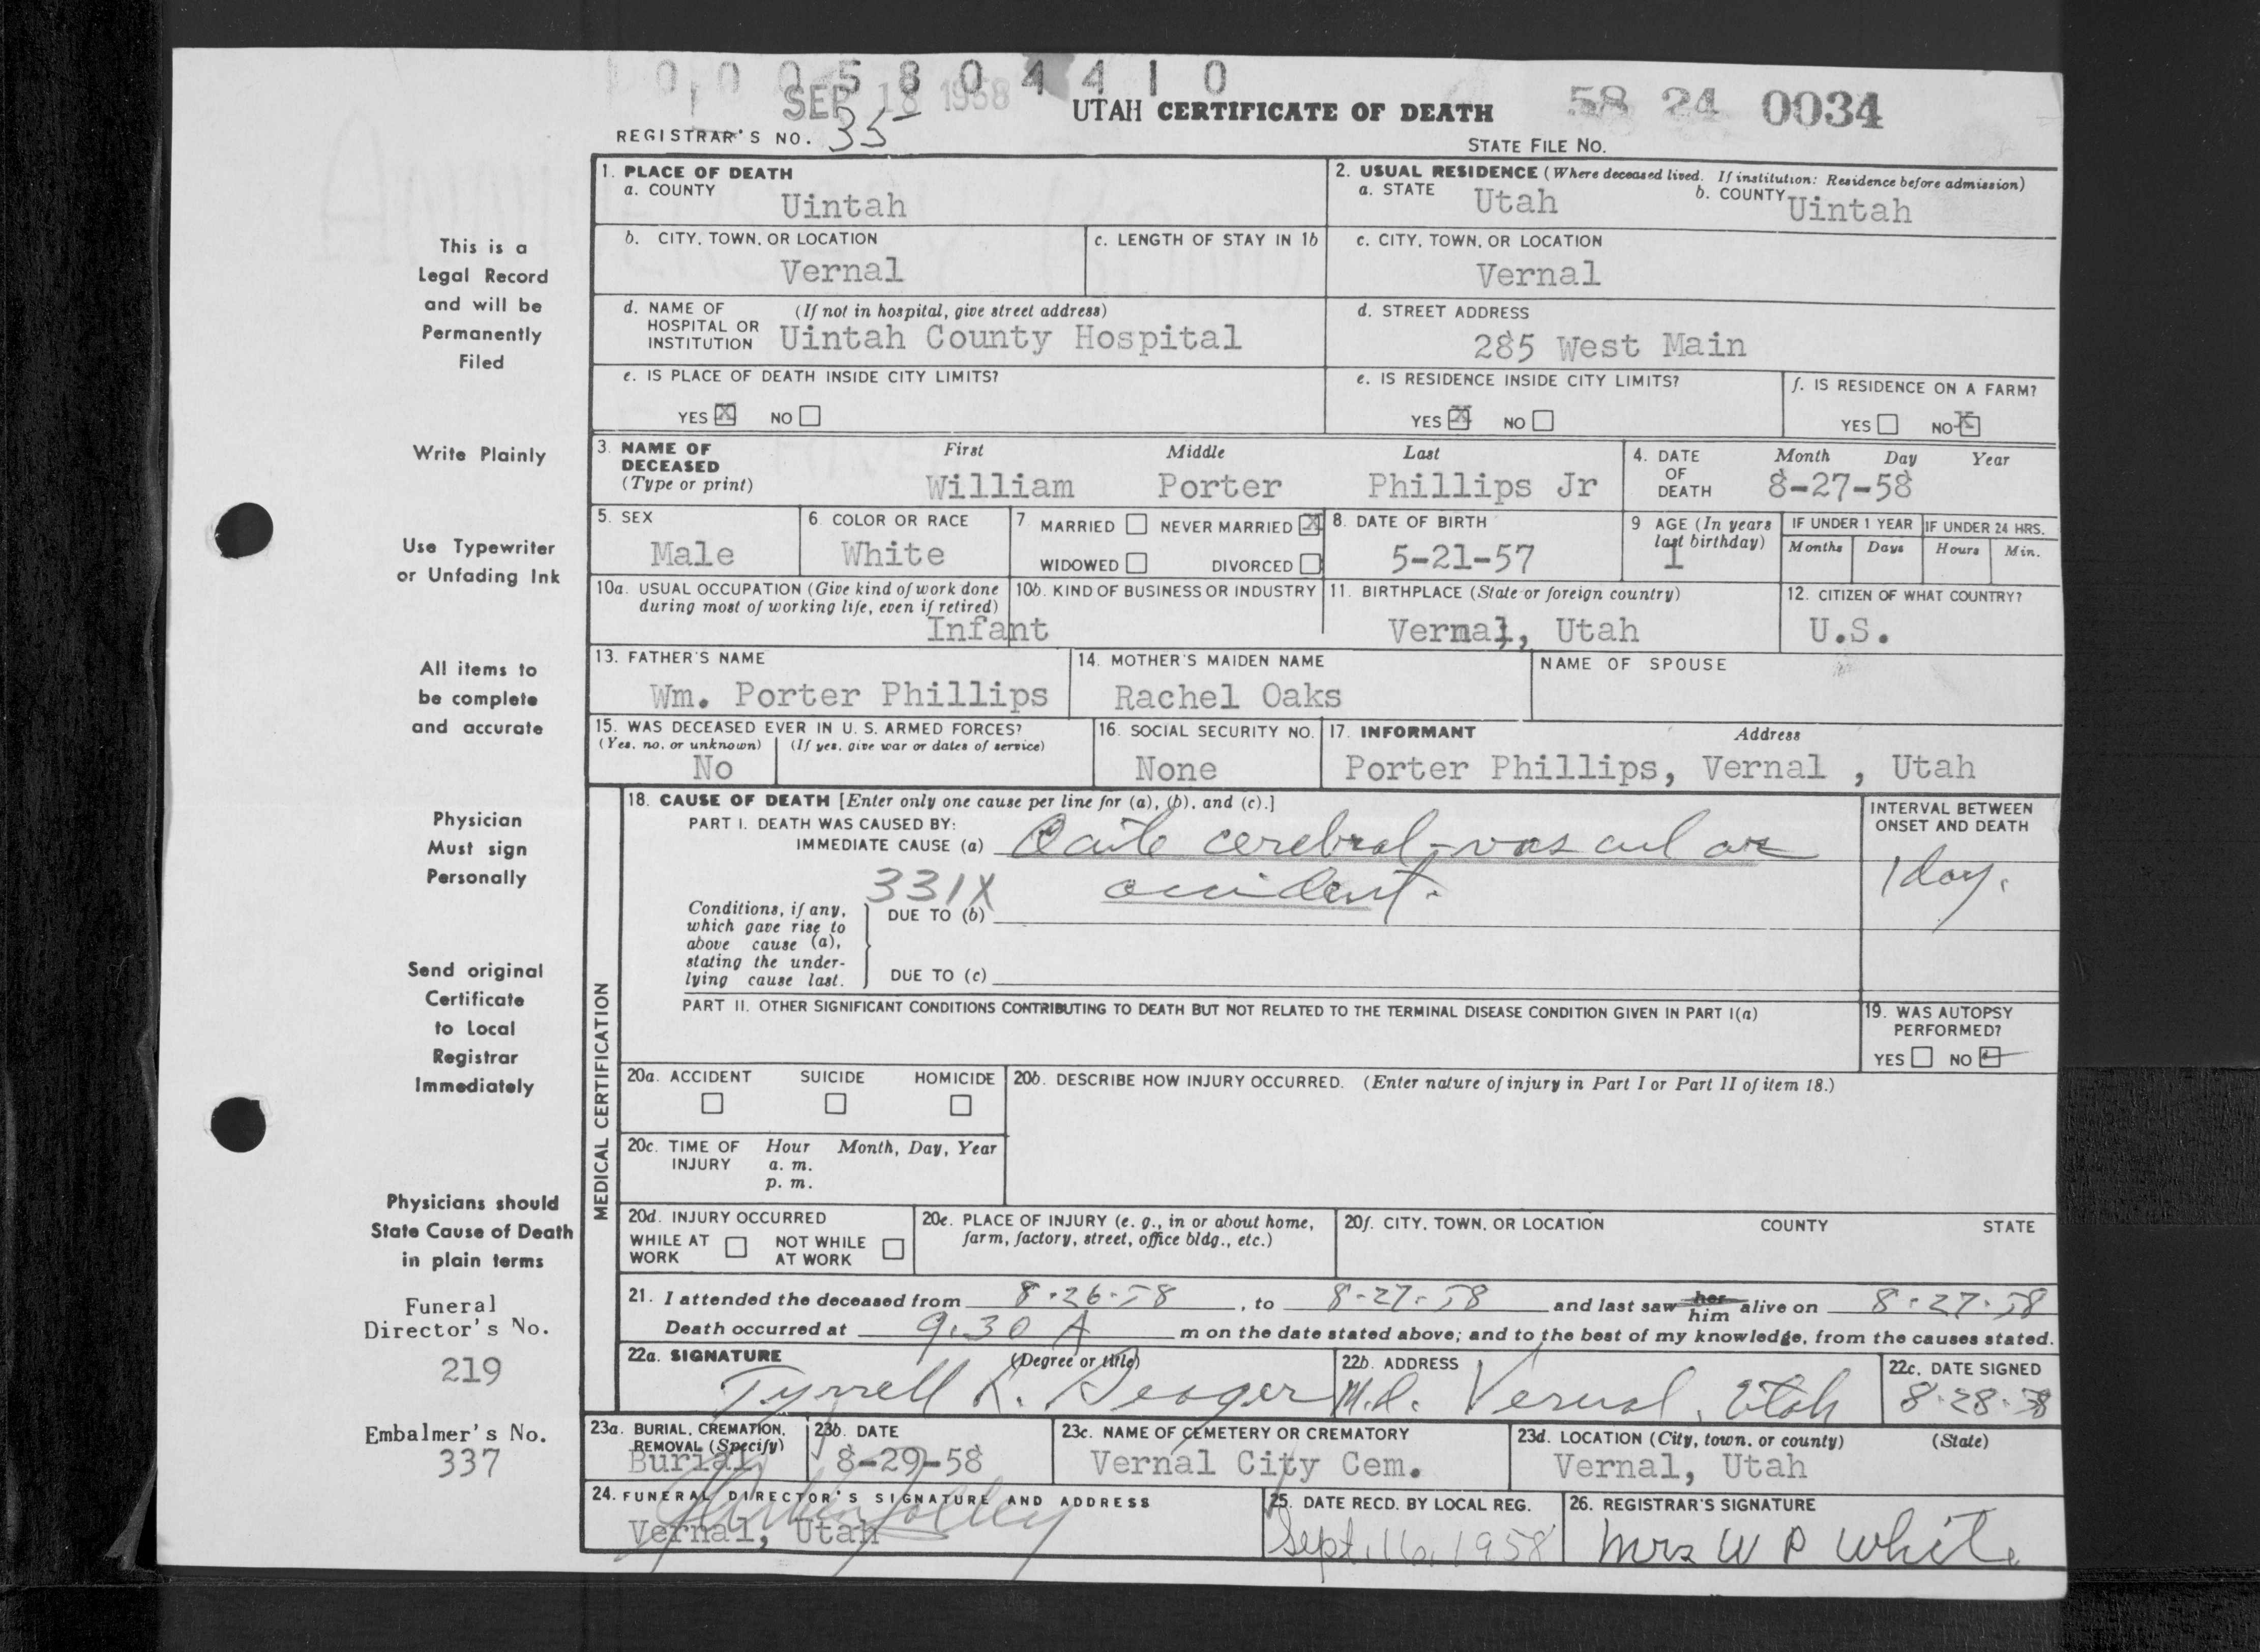 1 0 0 0 5 8 0 4 4 1 0
SEP 18 1958
UTAH CERTIFICATE OF DEATH
58 24 0034
REGISTRAR'S NO. 35
STATE FILE NO.
1. PLACE OF DEATH
a. COUNTY
Uintah
2. USUAL RESIDENCE (Where deceased lived. If institution: Residence before admission)
a. STATE Utah b. COUNTY Uintah
b. CITY, TOWN, OR LOCATION
Vernal
c. LENGTH OF STAY IN 1b
c. CITY, TOWN, OR LOCATION
Vernal
d. NAME OF HOSPITAL OR INSTITUTION (If not in hospital, give street address)
Uintah County Hospital
d. STREET ADDRESS
285 West Main
e. IS PLACE OF DEATH INSIDE CITY LIMITS?
YES X NO
e. IS RESIDENCE INSIDE CITY LIMITS?
YES X NO
f. IS RESIDENCE ON A FARM?
YES NO X
3. NAME OF DECEASED (Type or print)
First Middle Last
William Porter Phillips Jr
4. DATE OF DEATH
Month Day Year
8-27-58
5. SEX
Male
6. COLOR OR RACE
White
7 MARRIED NEVER MARRIED X
WIDOWED DIVORCED
8. DATE OF BIRTH
5-21-57
9 AGE (In years last birthday)
1
IF UNDER 1 YEAR
Months Days
IF UNDER 24 HRS.
Hours Min.
10a. USUAL OCCUPATION (Give kind of work done during most of working life, even if retired)
Infant
10b. KIND OF BUSINESS OR INDUSTRY
11. BIRTHPLACE (State or foreign country)
Vernal, Utah
12. CITIZEN OF WHAT COUNTRY?
U.S.
13. FATHER'S NAME
Wm. Porter Phillips
14. MOTHER'S MAIDEN NAME
Rachel Oaks
NAME OF SPOUSE
15. WAS DECEASED EVER IN U. S. ARMED FORCES?
(Yes, no, or unknown) (If yes, give war or dates of service)
No
16. SOCIAL SECURITY NO.
None
17. INFORMANT Address
Porter Phillips, Vernal , Utah
MEDICAL CERTIFICATION
18. CAUSE OF DEATH [Enter only one cause per line for (a), (b), and (c).]
PART I. DEATH WAS CAUSED BY:
IMMEDIATE CAUSE (a) Acute cerebral-vascular
accident.
331X
INTERVAL BETWEEN ONSET AND DEATH
1 day.
Conditions, if any, which gave rise to above cause (a), stating the underlying cause last.
DUE TO (b)
DUE TO (c)
PART II. OTHER SIGNIFICANT CONDITIONS CONTRIBUTING TO DEATH BUT NOT RELATED TO THE TERMINAL DISEASE CONDITION GIVEN IN PART I(a)
19. WAS AUTOPSY PERFORMED?
YES NO
20a. ACCIDENT SUICIDE HOMICIDE
20b. DESCRIBE HOW INJURY OCCURRED. (Enter nature of injury in Part I or Part II of item 18.)
20c. TIME OF INJURY Hour Month, Day, Year
a. m.
p. m.
20d. INJURY OCCURRED
WHILE AT WORK NOT WHILE AT WORK
20e. PLACE OF INJURY (e. g., in or about home, farm, factory, street, office bldg., etc.)
20f. CITY, TOWN, OR LOCATION COUNTY STATE
21. I attended the deceased from 8-26-58, to 8-27-58 and last saw her him alive on 8-27-58
Death occurred at 9:30 A m on the date stated above; and to the best of my knowledge, from the causes stated.
22a. SIGNATURE (Degree or title)
Tyrrell R. Seager M.D.
22b. ADDRESS
Vernal, Utah
22c. DATE SIGNED
8-28-58
23a. BURIAL, CREMATION, REMOVAL (Specify)
Burial
23b. DATE
8-29-58
23c. NAME OF CEMETERY OR CREMATORY
Vernal City Cem.
23d. LOCATION (City, town, or county) (State)
Vernal, Utah
24. FUNERAL DIRECTOR'S SIGNATURE AND ADDRESS
Vernal, Utah
25. DATE RECD. BY LOCAL REG.
Sept. 16, 1958
26. REGISTRAR'S SIGNATURE
Mrs W P White
This is a
Legal Record
and will be
Permanently
Filed
Write Plainly
Use Typewriter
or Unfading Ink
All items to
be complete
and accurate
Physician
Must sign
Personally
Send original
Certificate
to Local
Registrar
Immediately
Physicians should
State Cause of Death
in plain terms
Funeral
Director's No.
219
Embalmer's No.
337